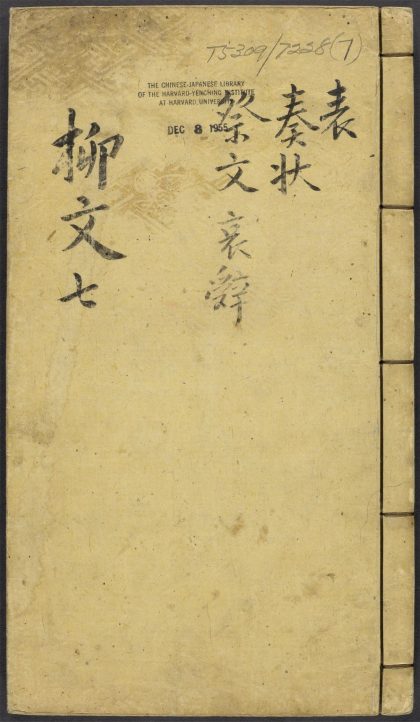 T5309/7228(7)
THE CHINESE-JAPANESE LIBRARY
OF THE HARVARD-YENCHING INSTITUTE
AT HARVARD UNIVERSITY
DEC 8 1955
表
奏狀
祭文 哀辭
柳文 七